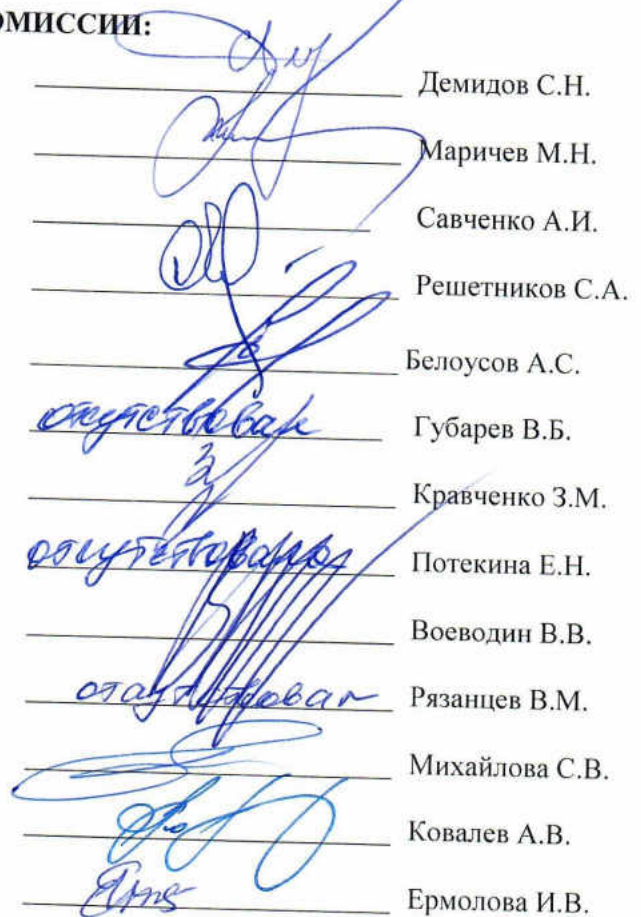 ОМИССИИ:
Демидов С.Н.
Маричев М.Н.
Савченко А.И.
Решетников С.А.
Белоусов А.С.
отсутствовал Губарев В.Б.
Кравченко З.М.
отсутствовала Потекина Е.Н.
Воеводин В.В.
отсутствовал Рязанцев В.М.
Михайлова С.В.
Ковалев А.В.
Ермолова И.В.